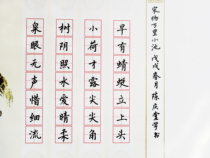 泉眼无声惜细流
树阴照水爱晴柔
小荷才露尖尖角
早有蜻蜓立上头
宋杨万里小池 戊戌春月 陈庆 学书